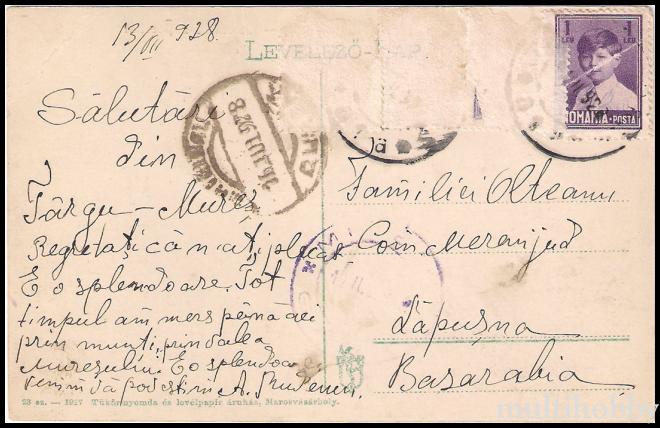 13/VII 928
LEVELEZŐ-LAP
1 LEU 1 LEU
ROMANIA·POSTA
Sălutări
din
Târgu-Mureș
Regretați că n-ați plecat
E o splendoare. Tot
timpul am mers până aci
prin munți prin valea
Mureșului. E o splendoare
Familiei Olteanu
Com Mereni jud
Lăpușna
Basarabia
23 sz. — 1917 Tükörnyomda és levélpapir áruház, Marosvásárhely.
multihobby